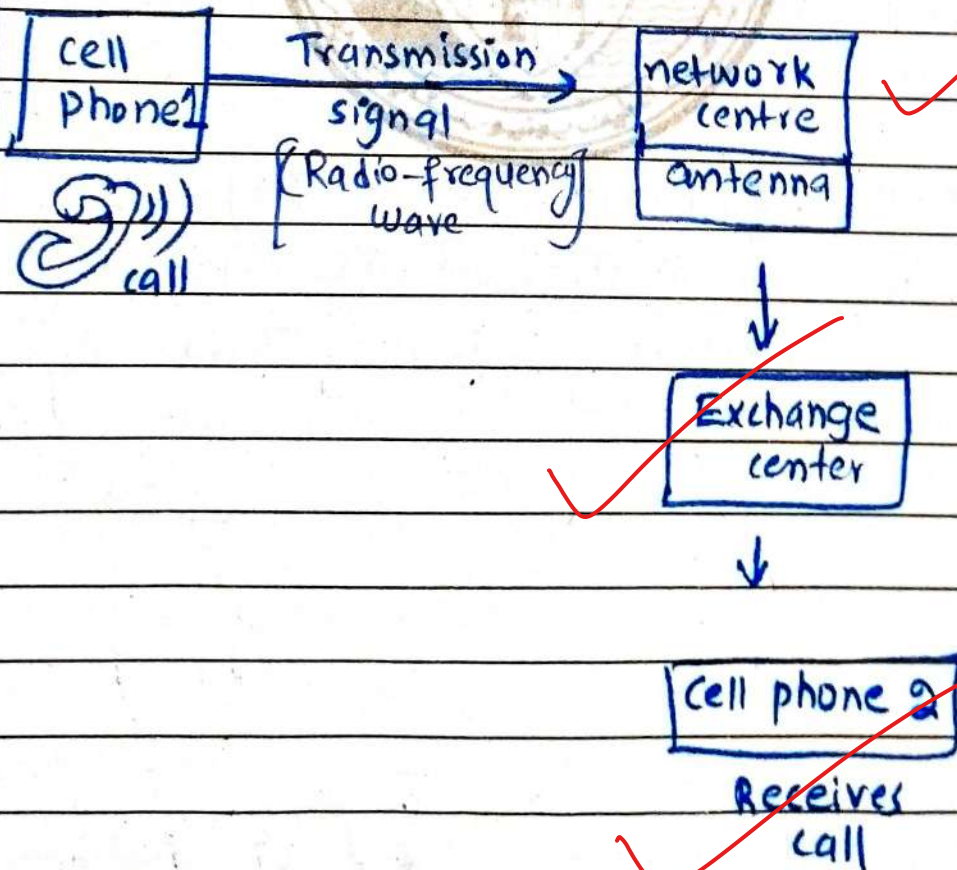 cell
phone1
Transmission
signal
[Radio-frequency]
wave
network
centre
antenna
call
Exchange
center
Cell phone 2
Receives
call